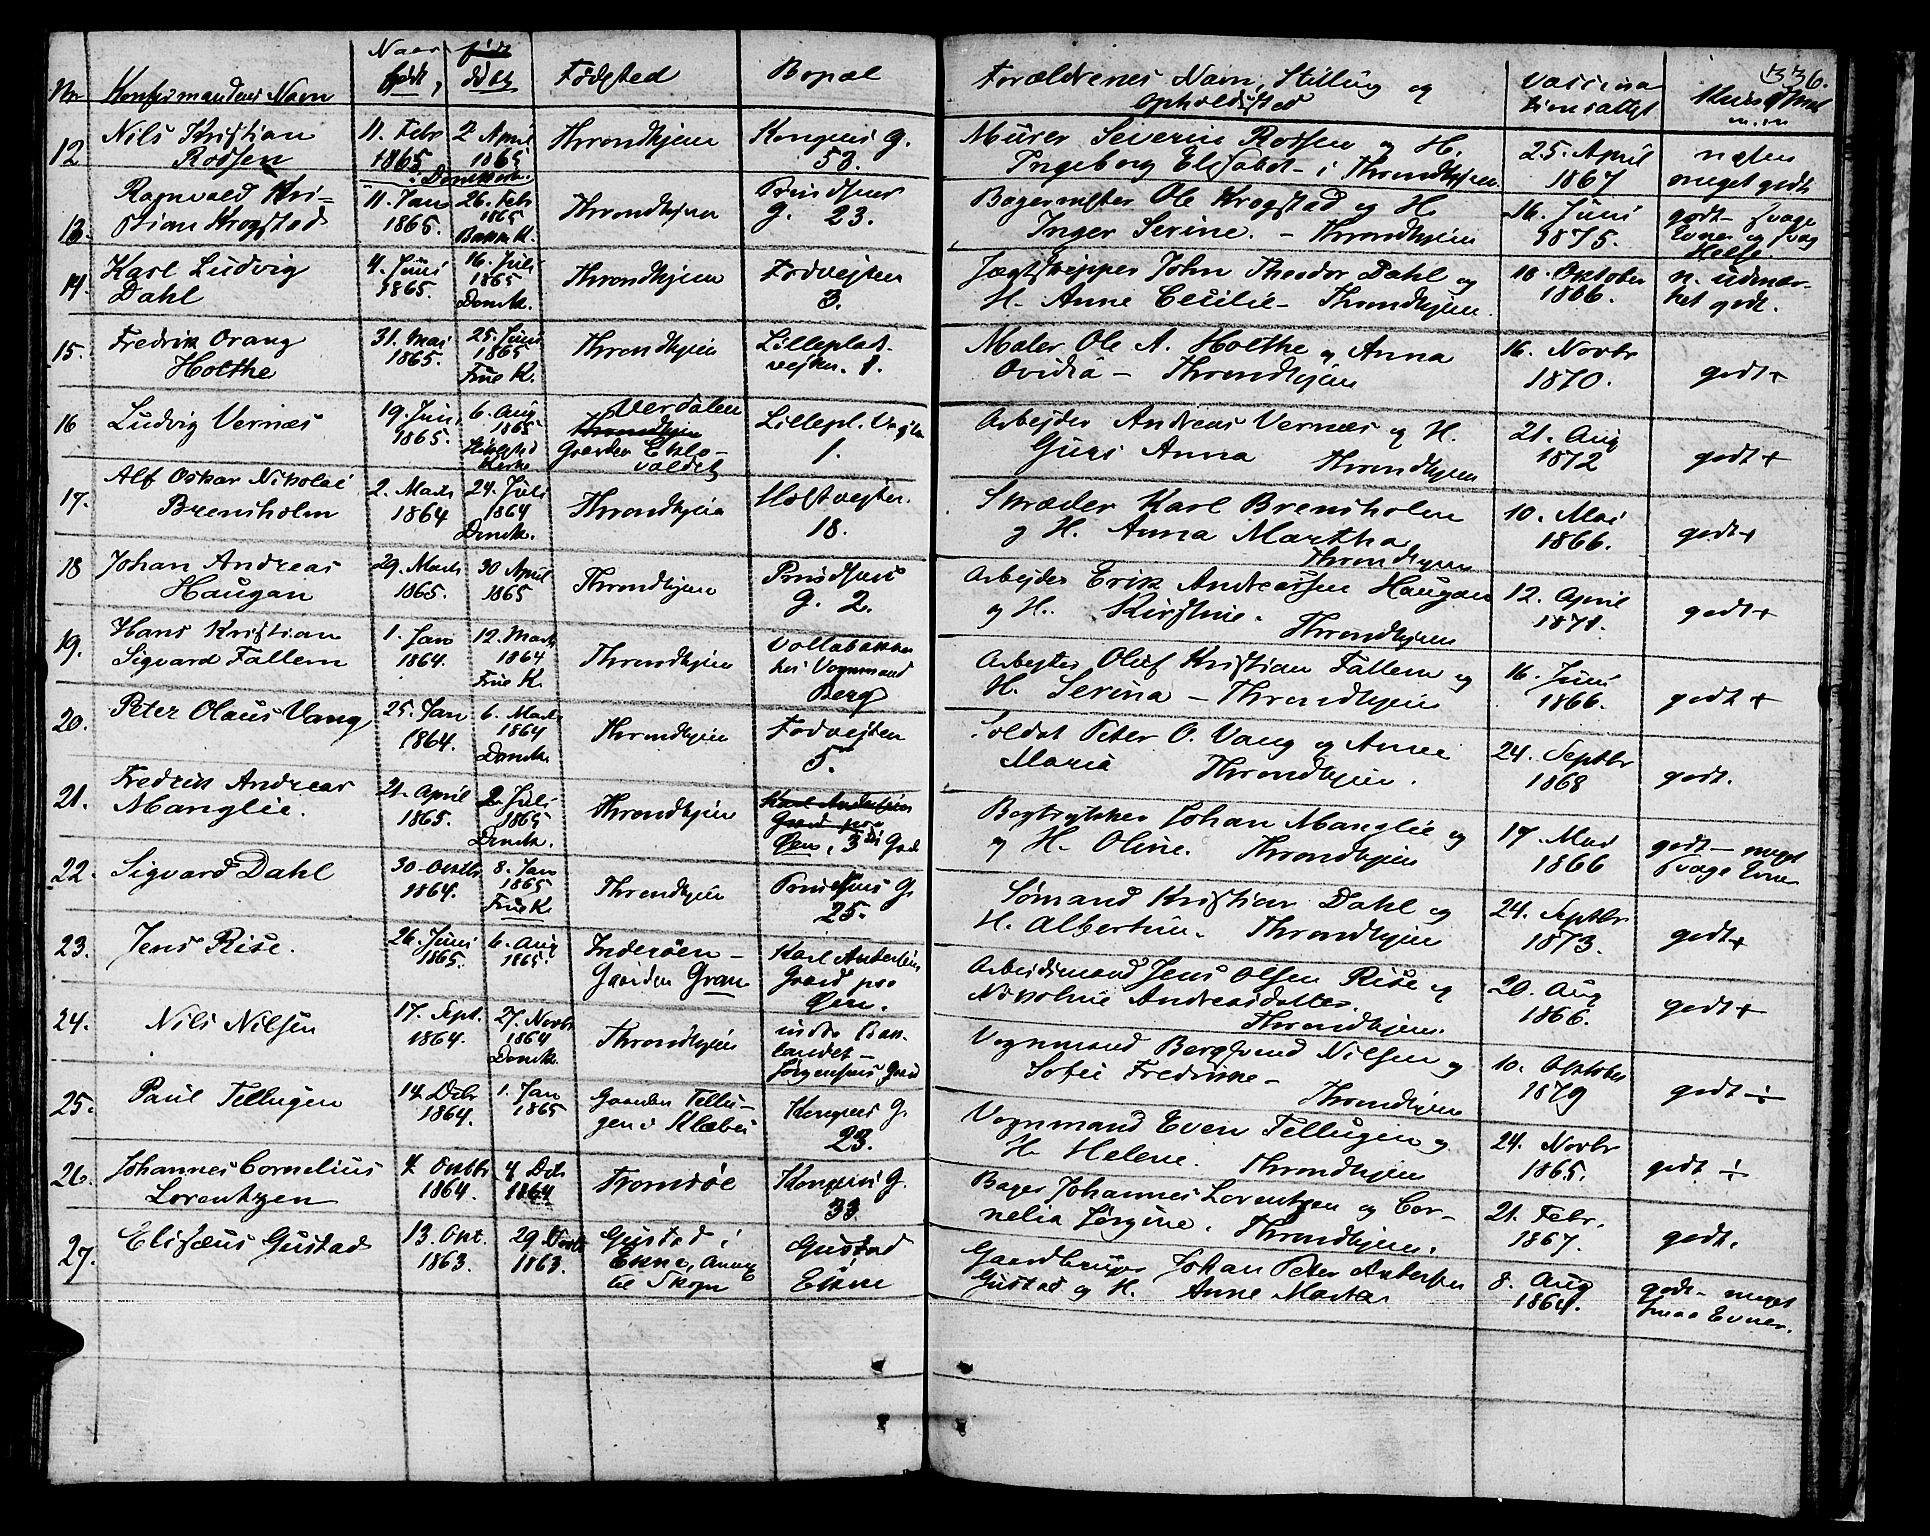 Nr. Konfirmandens Navn Naar født, døbt Fødested Bopæl Forældrenes Navn, Stilling og Opholdssted Vaccinationsattest 336.
12 Nils Kristian Rossen 11. Febr 1865 2 April 1865 Domk. Throndhjem Kongens g. 53. Murer Severin Rossen og H. Ingeborg Elisabet - i Throndhjem 25. April 1867 næsten meget godt
13. Ragnvald Kristian Krogstad 11. Jan 1865. 26. Febr 1865 Bakke K. Throndhjem Prindsens g. 23. Bagermester Ole Krogstad og H. Inger Serine. - Throndhjem 16. Juni 1875. godt - svage Evner og svag Helse.
14. Karl Ludvig Dahl 4. Juni 1865. 16. Juli 1865 Domk. Throndhjem Fodvejten 3. Jægtskipper John Theodor Dahl og H. Anne Cecilie - Throndhjem. 18. Oktober 1866. n. udmærket godt.
15. Fredrik Orang Holthe 31. Mai 1865. 25. Juni 1865 Frue K. Throndhjem Lilleplads vejten. 1. Maler Ole A. Holthe og Anna Ovidia - Throndhjem 16. Novbr 1870. godt +
16 Ludvig Vernæs 19. Juni 1865. 6. Aug 1865 Kirke Verdalen Throndhjem Gaarden Eklovaldet Lillepl. Vejten 1. Arbejder Andreas Vernæs og H. Guri Anna Throndhjem 21. Aug 1872 godt +
17. Alf Oskar Nikolai Brensholm 2. Marts 1864 24. Juli 1864 Domk. Throndhjem Holstvejten. 18. Skræder Karl Brensholm og H. Anna Martha Throndhjem 10. Mai 1866. godt +
18 Johan Andreas Haugan 29. Marts 1865. 30 April 1865 Throndhjem Prindsens g. 2. Arbejder Erik Andreassen Haugan og H. Kirstine. Throndhjem 12. April 1871. godt +
19. Hans Kristian Sigvard Fallem 1. Jan 1864. 12. Marts 1864 Frue K. Throndhjem Vollabakken hos Vognmand Berg Arbejder Oluf Kristian Fallem og H. Serina - Throndhjem 16. Juni 1866. godt +
20. Peter Olaus Vang 25. Jan 1864. 6. Marts 1864 Domk. Throndhjem Fodvejten 5. Soldat Peter O. Vang og Anne Maria Throndhjem. 24. Septbr 1868 godt.
21. Fredrik Andreas Manglie. 21. April 1865. 2. Juli 1865 Domk. Throndhjem Karl Andersens Gaard paa Øen, 3 die Gade Bogtrykker Johan Manglie og og H. Oline. Throndhjem 17. Mai 1866 godt - meget svage Evner
22. Sigvard Dahl 30. Oktbr 1864. 8. Jan 1865 Frue K. Throndhjem Prindsens G. 25. Sømand Kristian Dahl og H. Albertine. Throndhjem 24. Septbr 1873. godt +
23. Jens Rise. 26. Juni 1865. 6. Aug 1865. Inderøen - Gaarden Gran Karl Andersens Gaard paa Øen. Arbeidsmand Jens Olsen Rise og Nikoline Andreasdatter. Throndhjem. 20. Aug 1866. godt +
24. Nils Nilsen 17. Sept. 1864. 27. Novbr 1864 Domk. Throndhjem indre Baklandet - Jørgensens Gaard Vognmand Bergsvend Nilsen og Sofie Fredrikke - Throndhjem 10. Oktober 1879 godt ÷
25. Paul Tellugen 14. Debr 1864. 1. Jan 1865 Gaarden Tellugen i Klæbu Kongens G. 23. Vognmand Even Tellugen og H. Helene. Throndhjem 24. Novbr 1865. godt ÷
26. Johannes Cornelius Lorentzen 4. Oktbr 1864. 4. Debr 1864 Tromsøe Kongens G. 33. Bager Johannes Lorentzen og Cornelia Jørgine. Throndhjem. 21. Febr. 1867. godt.
27. Elisæus Gustad 13. Okt. 1863. 29. Novbr 1863. Gustad i Ekne, Annex til Skogn Gustad Ekne Gaardbruger Johan Peter Andersen Gustad og H. Anne Marta 8. Aug 1864. godt - meget smaa Evner.